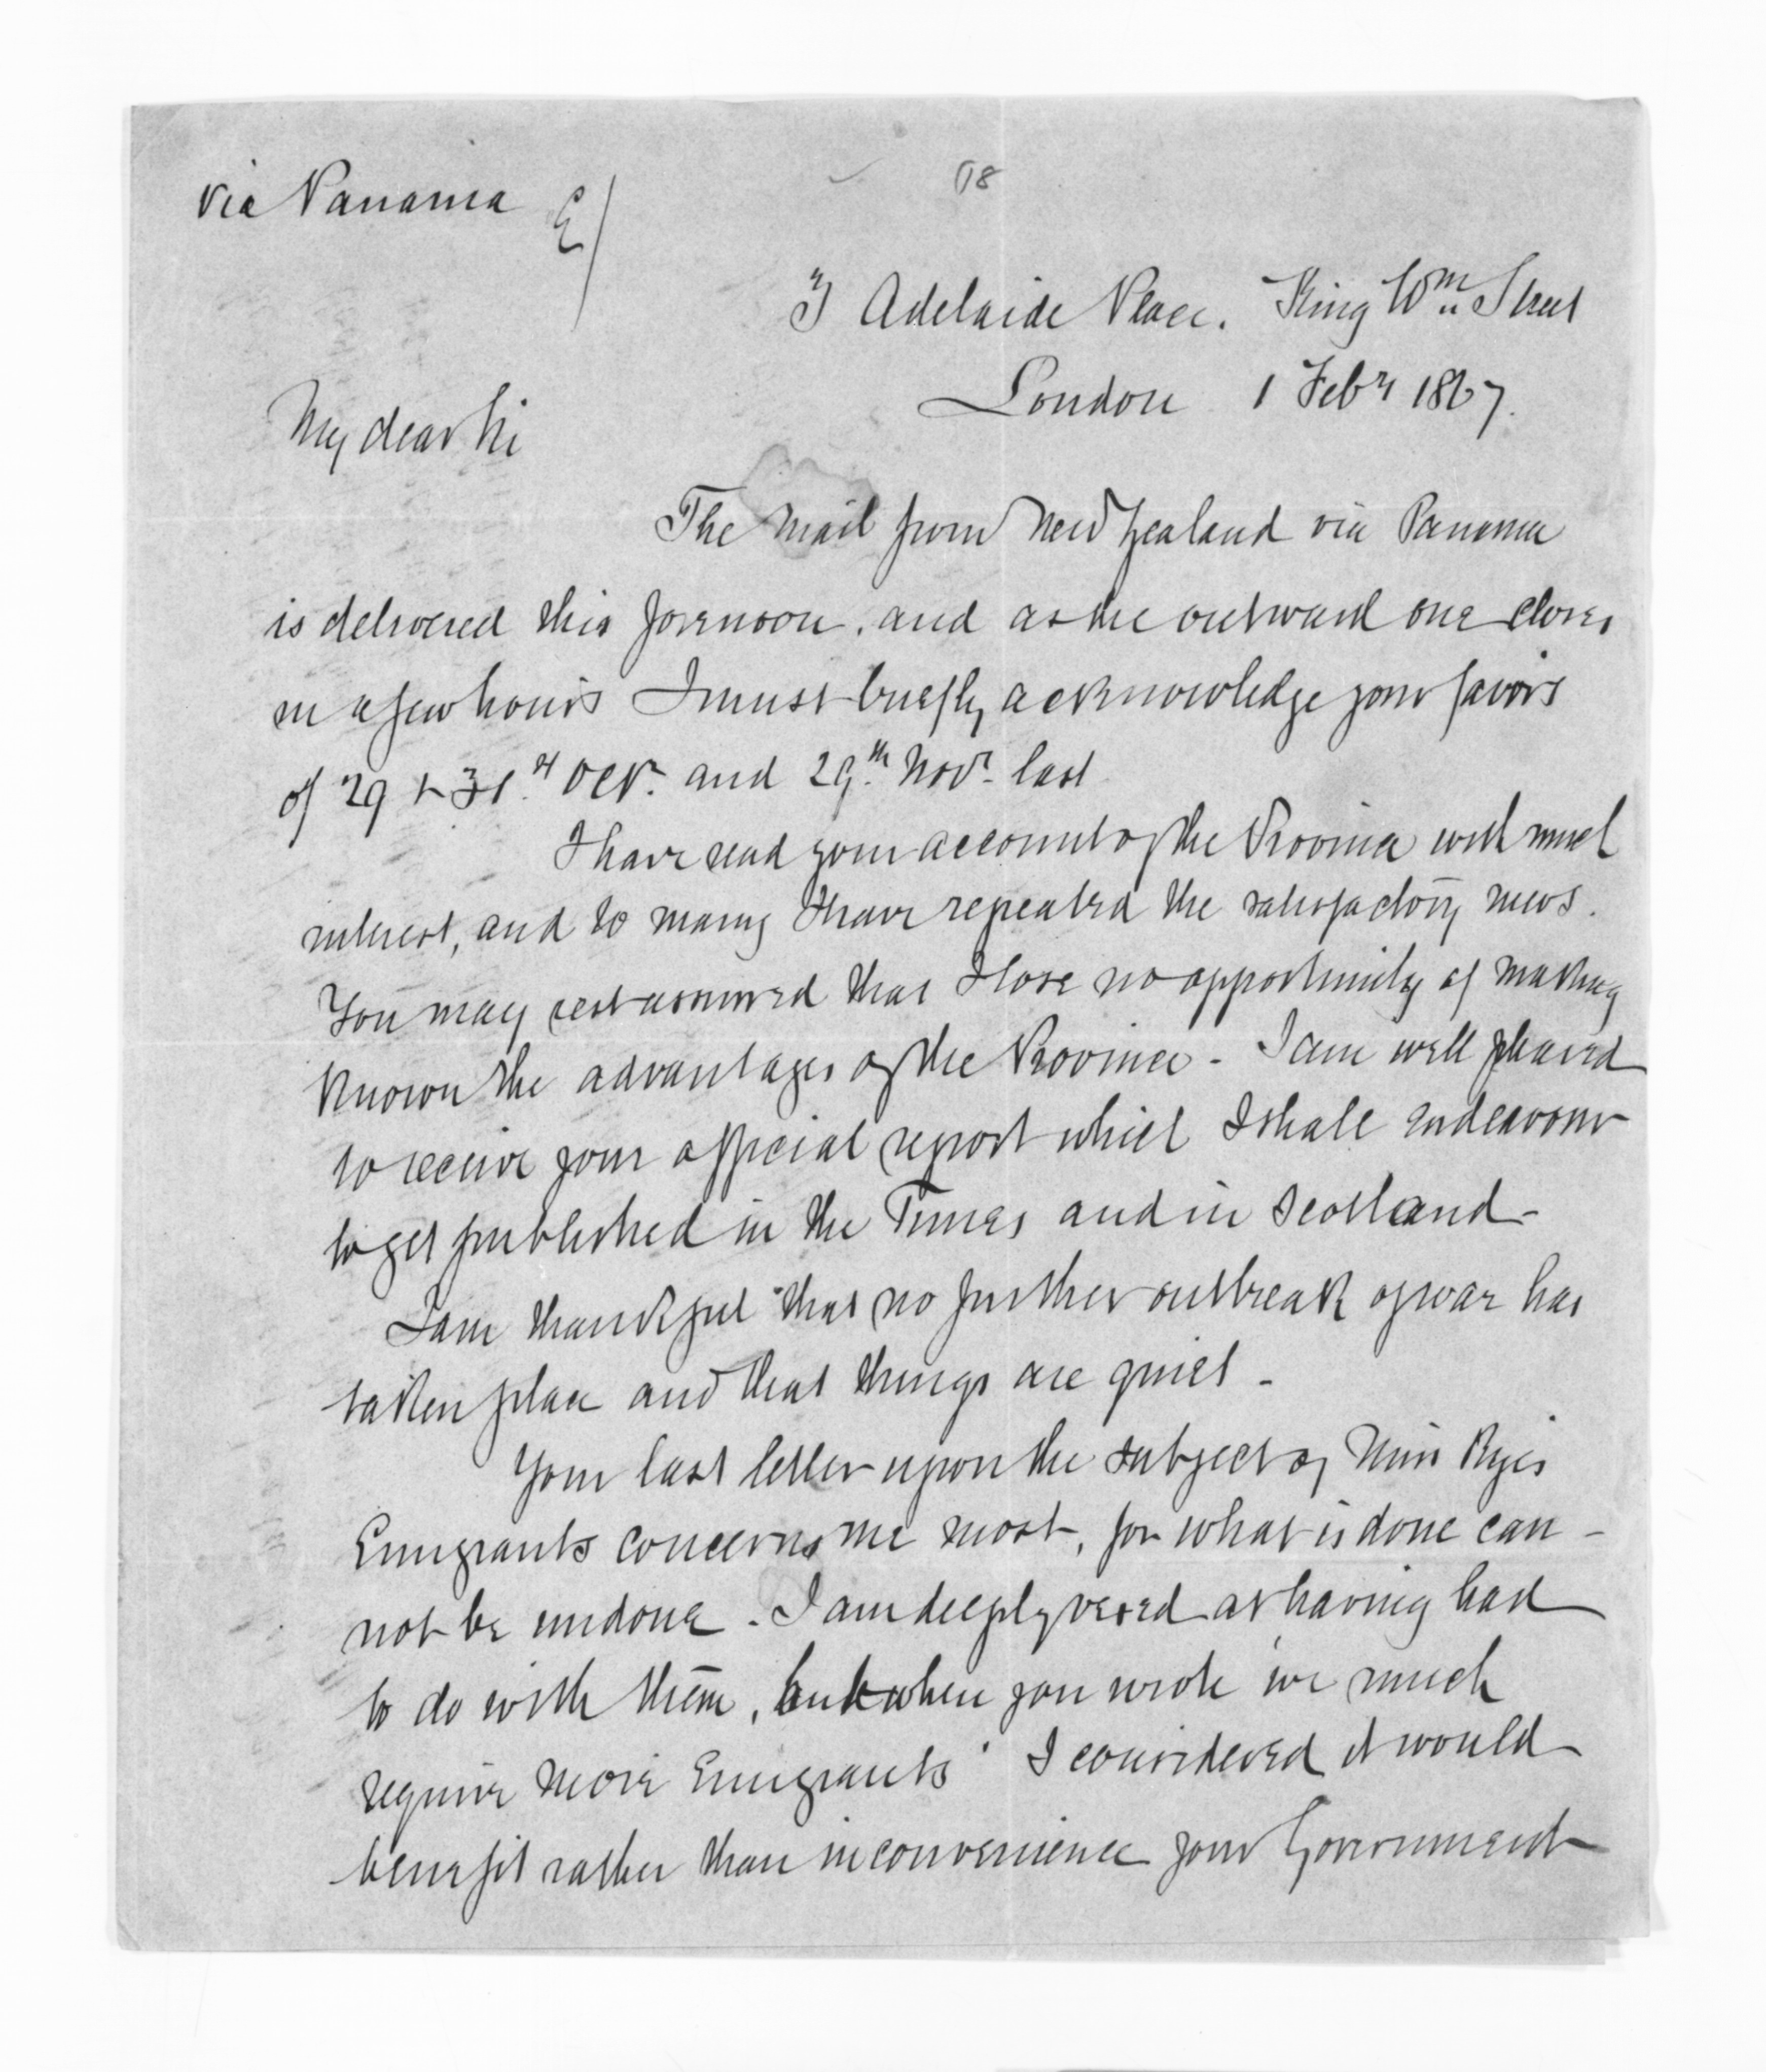 via Panama
18
3 Adelaide Place. King Wm Street
London 1 Feby 1867.
My dear Sir
The Mail from New Zealand via Panama
is delivered this forenoon, and as the outward one closes
in a few hours I must briefly acknowledge your favors
of 29 & 31st Octr. and 29th Novr. last
I have read your account of the Province with much
interest, and to many I have repeated the satisfactory news.
You may rest assured that I lose no opportunity of making
known the advantages of the Province - I am well pleased
to receive your official report which I shall endeavour
to get published in the Times and in Scotland -
I am thankful that no further outbreak of war has
taken place and that things are quiet -
Your last letter upon the subject of Miss Rye's
Emigrants concerns me most, for what is done can -
not be undone - I am deeply vexed at having had
to do with them, but when you wrote 'we much
require more Emigrants' I considered it would
benefit rather than inconvenience your Government